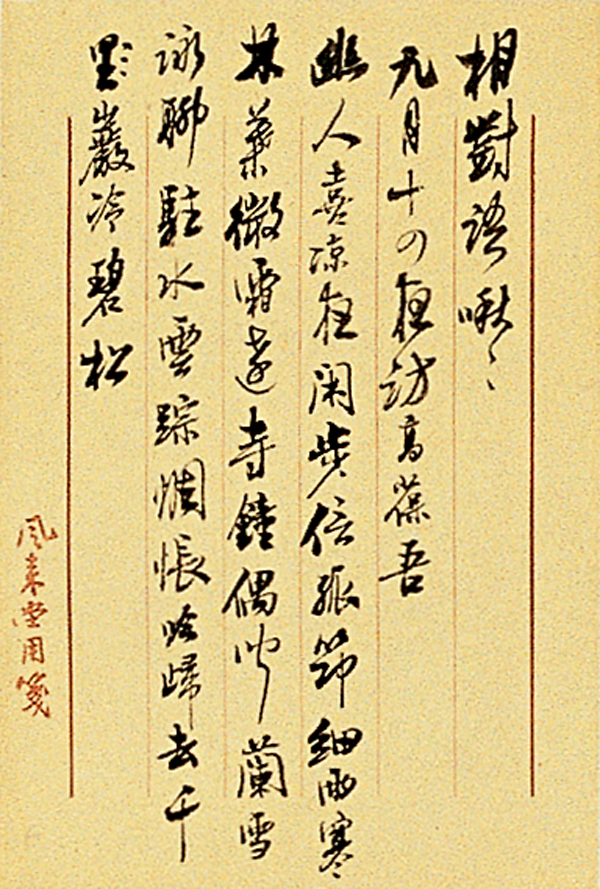 相對語啾〻
九月十四夜訪高葆吾
幽人喜凉夜閑步信孤筇細雨寒
林葉微霜遠寺鐘偶聞蘭雪
詠聊駐水雲踪惆悵吟歸去千
巖冷碧松
風來堂用箋